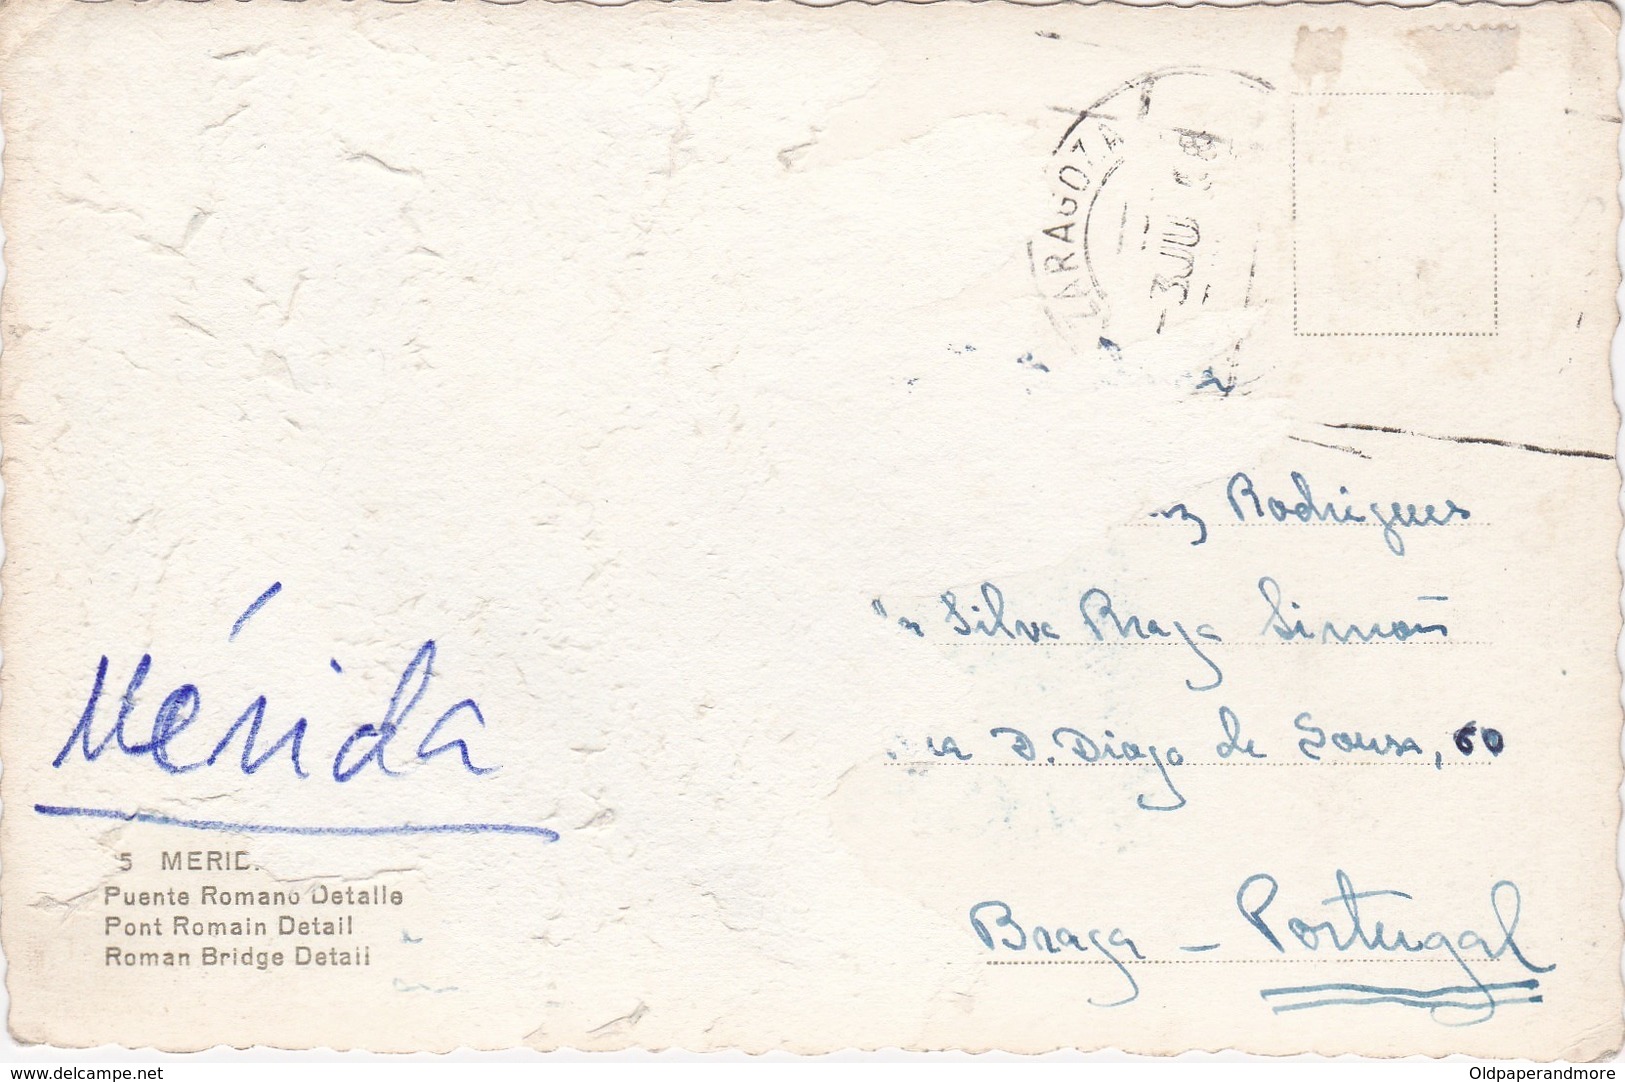 ZARAGOZA
-3 JUL 58
Rodrigues
Silva Braga Simões
D. Diogo de Sousa, 60
Mérida
5 MERID
Puente Romano Detalle
Pont Romain Detail
Roman Bridge Detail
Braga — Portugal
www.delcampe.net
Oldpaperandmore